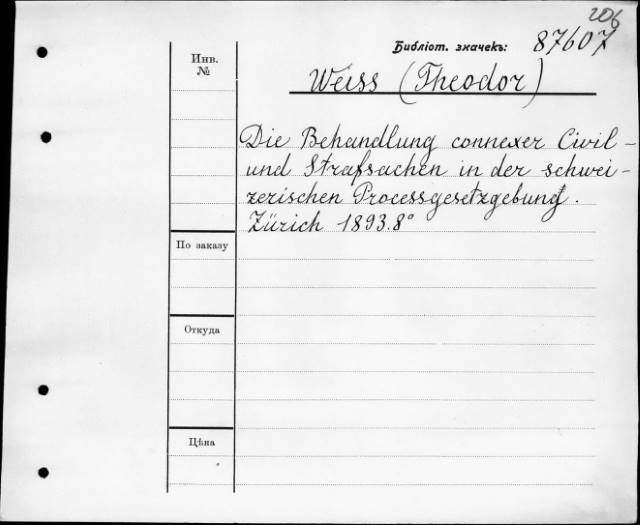 206
Библіот. значекъ: 87607
Инв.
№
Weiss (Theodor)
Die Behandlung connexer Civil-
und Strafsachen in der schwei-
zerischen Processgesetzgebung.
Zürich 1893.8°
По заказу
Откуда
Цѣна